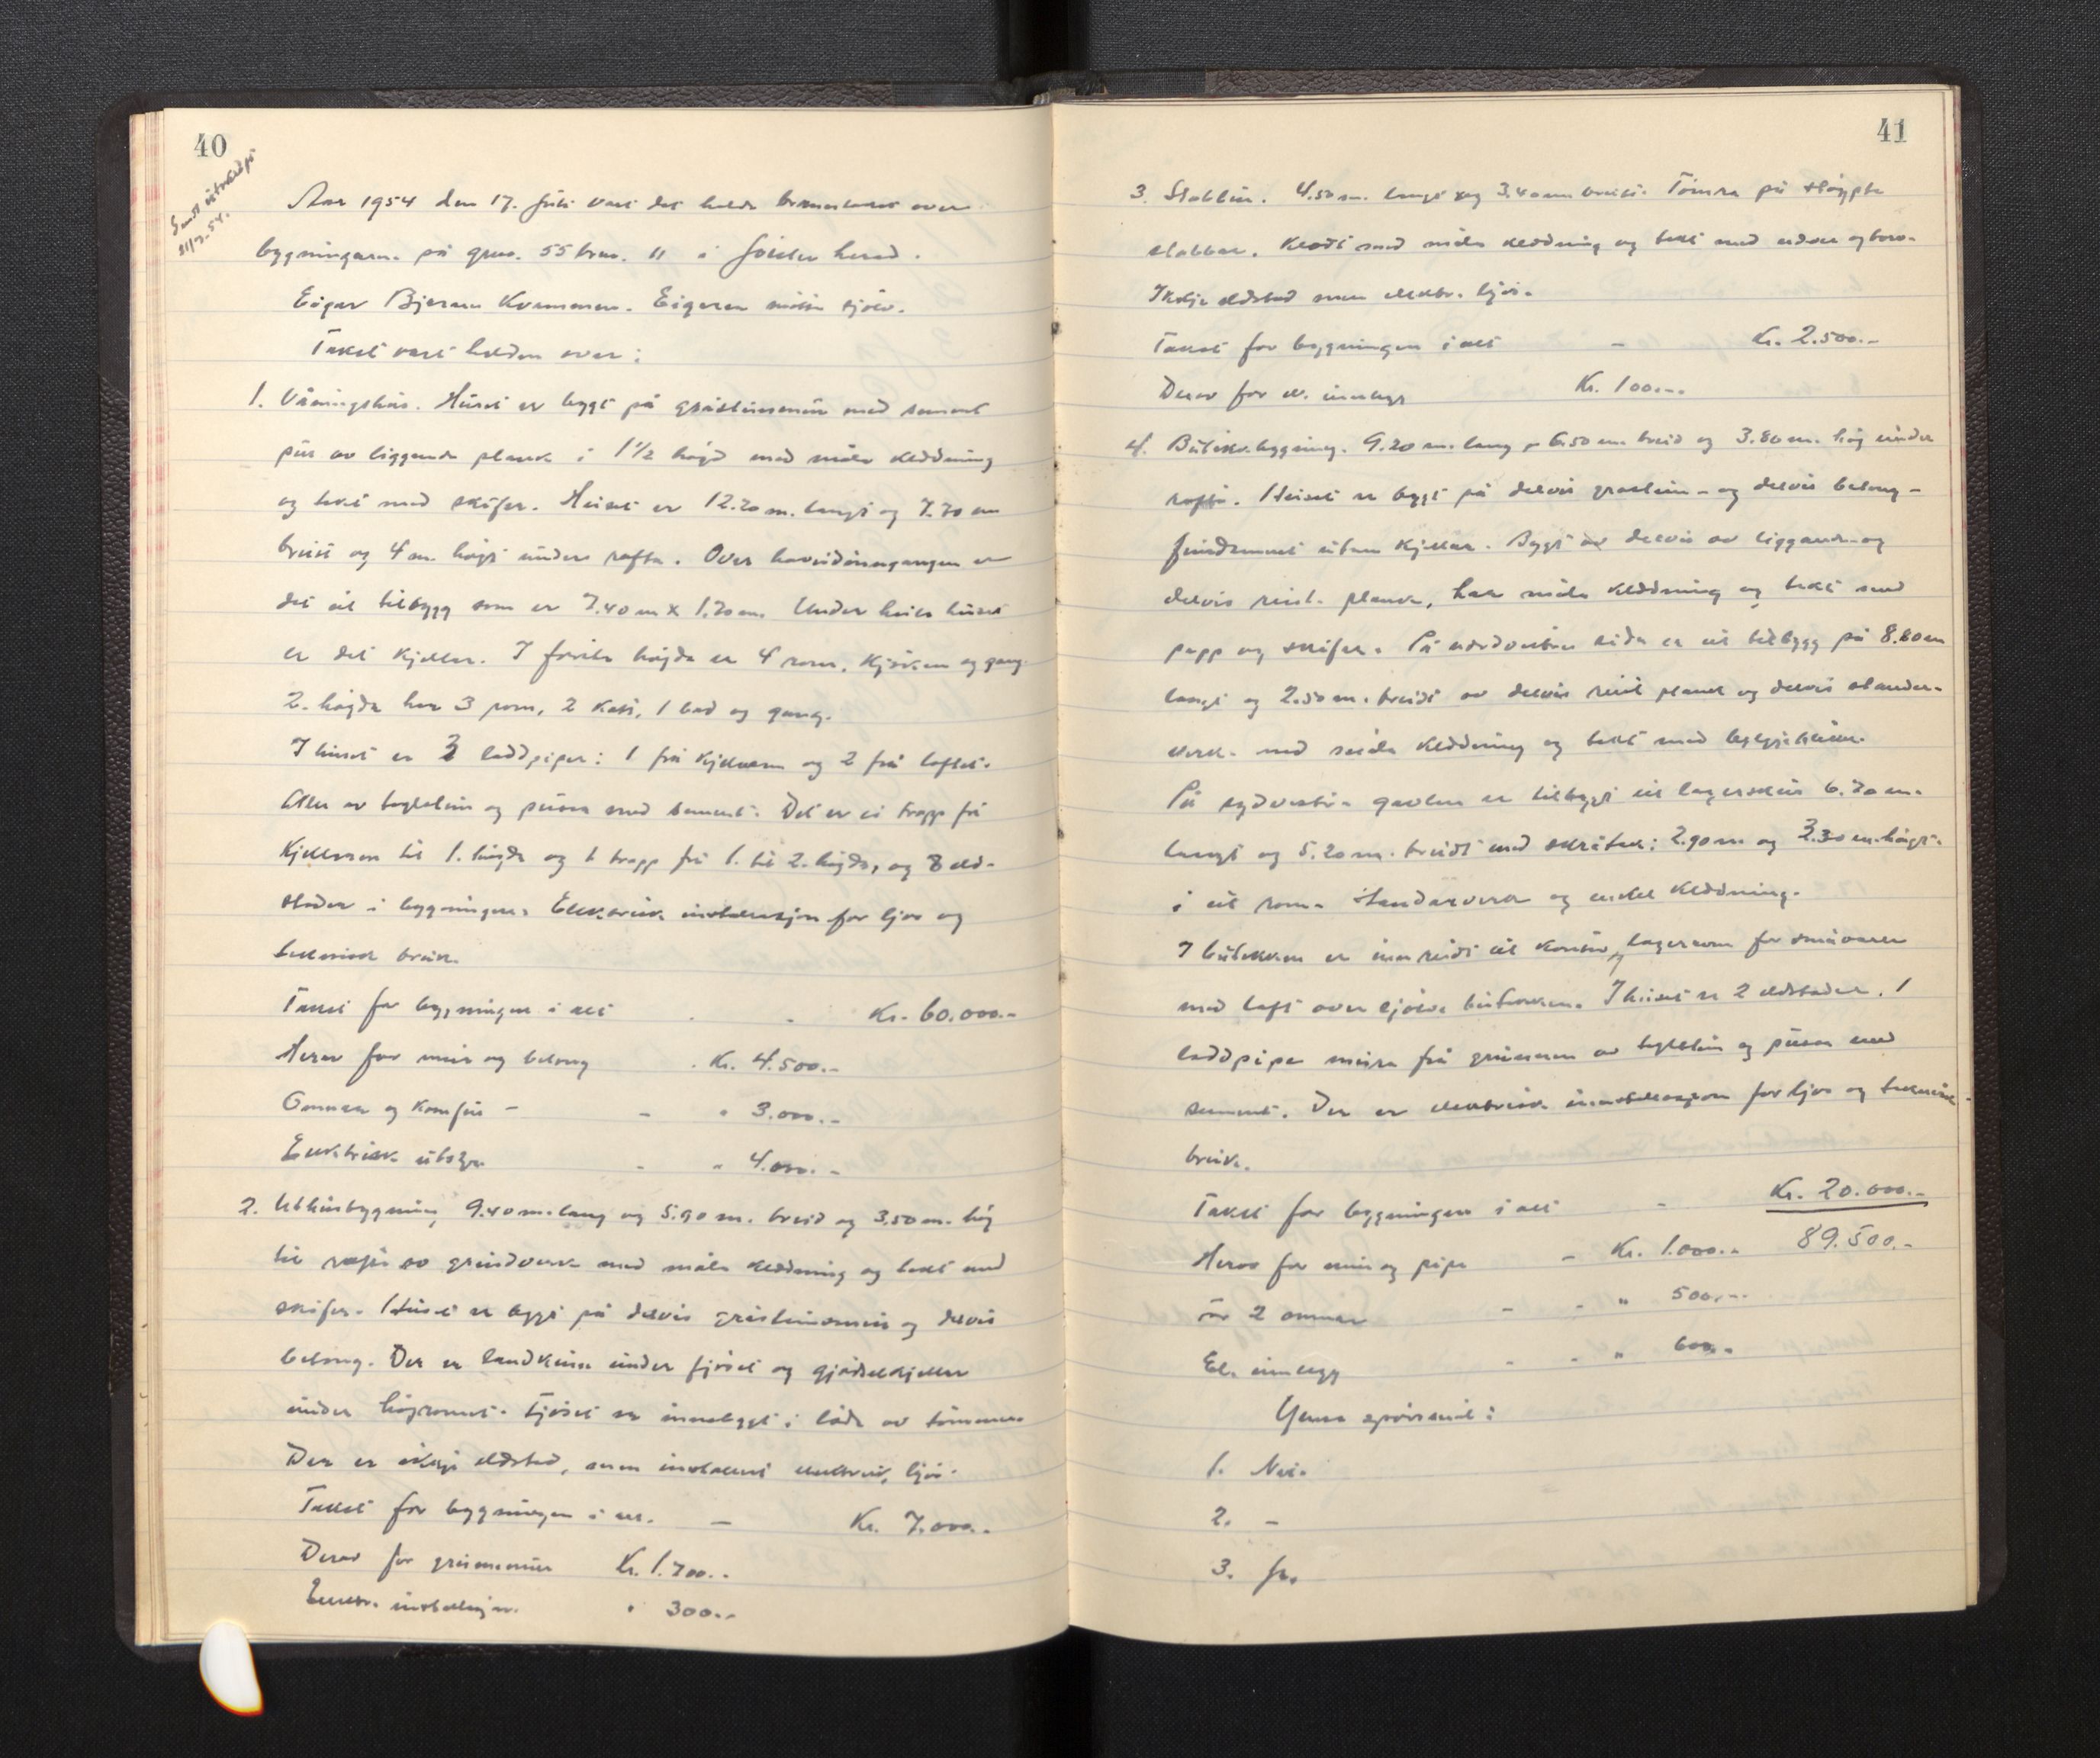 40
Sendt utskrift
21/7-54.
Aar 1954 den 17. juli vart det halde branntakst over
bygningarn. på gnr. 55 brn. 11 i Førde herad.
Eigar Bjarne Kvammen. Eigeren møtte sjølv.
Takst vart halden over:
1. Våningshus. Huset er bygt på gråsteinsmur med sement
puss av liggande plank i 1 1/2 høgd med måla kledning
og tekt med skifer. Huset er 12.20 m. langt og 7.70 m
breitt og 4 m. høgt under rafta. Over hovudinngangen er
det eit tilbygg som er 7.40 m x 1.70 m. Under heile huset
er det kjellar. I fyrste høgda er 4 rom, kjøken og gang.
2. høgda har 3 rom, 2 kott, 1 bad og gang.
I huset er 3 loddpiper: 1 frå kjellaren og 2 frå loftet.
Alle av teglstein og pussa med sement. Det er ei trapp frå
kjellaren til 1. høgda og 1 trapp frå 1. til 2. høgda, og 8 eld-
stader i bygningen. Elektrisk installasjon for ljos og
teknisk bruk.
Takst for bygningen i alt - - Kr. 60.000.-
Herav for mur og betong - Kr. 4.500.-
Omnar og komfur - - " 3.000.-
Elektrisk utstyr - " 4.000.-
2. Uthusbygning, 9.40 m. lang og 5.90 m. breid og 3.50 m. høg
til raft av grindverk med måla kledning og tekt med
skifer. Huset er bygt på delvis gråsteinsmur og delvis
betong. Der er landkum under fjøset og gjødselkjellar
under høyromet. Fjøset er innebygt i løda av tømmer.
Der er ikkje eldstad, men installert elektrisk ljos.
Takst for bygningen i alt. - Kr. 7.000.-
Derav for grunnmur Kr. 1.700.-
Elektr. installasjon. " 300.-
41
3. Stabbur. 4.50 m. langt og 3.40 m breitt. Tømra på støypte
stabbar. Kledt med måla kledning og tekt med never og torv.
Ikkje eldstad men elektr. ljos.
Takst for bygningen i alt - Kr. 2.500.-
Derav for el. innlegg Kr. 100.-
4. Butikkbygning. 9.20 m. lang, 6.50 m. breid og 3.80 m. høg under
rafta. Huset er bygt på delvis gråstein- og delvis betong-
fundament utan kjellar. Bygt av delvis av liggande og
delvis reist plank, har måla kledning og tekt med
papp og skifer. På nordvestre sida er eit tilbygg på 8.80 m
langt og 2.50 m. breidt av delvis reist plank og delvis stander-
verk. med måla kledning og tekt med bylgjeblikk.
På sydvestre gavlen er tilbygt eit lagerskur 6.70 m.
langt og 5.20 m. breidt med skråtak: 2.90 m og 2.30 m. høgt.
i eit rom. Standarverk og enkel kledning.
I butikken er innreidt eit kontor og lagerrom for småvarer
med loft over sjølve butikken. I huset er 2 eldstader. 1
loddpipe mura frå grunnen av teglstein og pussa med
sement. Der er elektrisk installasjon for ljos og teknisk
bruk.
Takst for bygningen i alt - Kr. 20.000.-
Herav for mur og pipe - Kr. 1.000.- 89.500.-
for 2 omnar - - " 500.-
El. innlegg - - " 600.-
Ymse spørsmål:
1. Nei.
2. -
3. Ja.